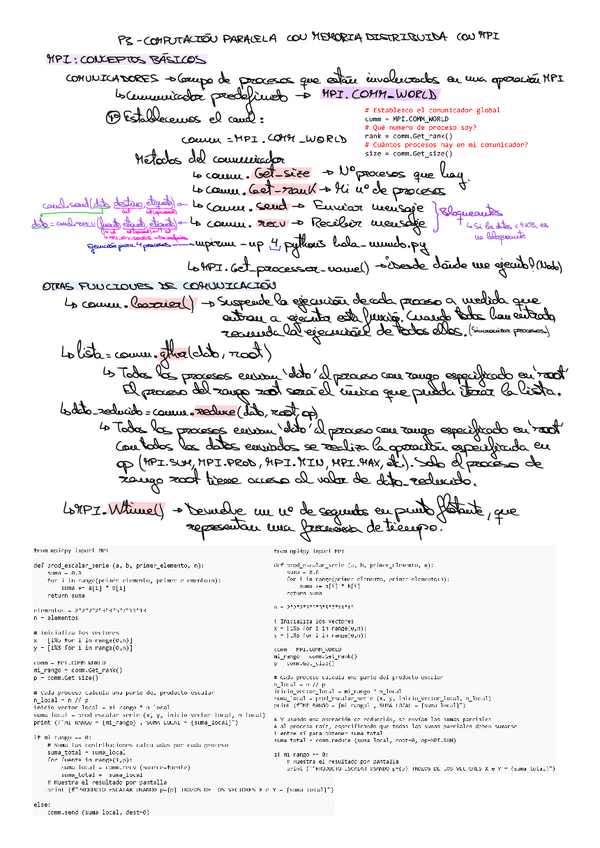 P3 - COMPUTACIÓN PARALELA CON MEMORIA DISTRIBUIDA CON MPI
MPI: CONCEPTOS BÁSICOS
COMUNICADORES → Grupo de procesos que están involucrados en una operación MPI
↳ Comunicador predefinido → MPI.COMM_WORLD
Establecemos el canal:
comm = MPI.COMM_WORLD
# Establezco el comunicador global
comm = MPI.COMM_WORLD
# Qué numero de proceso soy?
rank = comm.Get_rank()
# Cuántos procesos hay en mi comunicador?
size = comm.Get_size()
Métodos del comunicador
↳ comm.Get_size → Nº procesos que hay.
↳ comm.Get_rank → Mi nº de procesos
canal.send(dato, destino, etiqueta) ← ↳ comm.send → Enviar mensaje
dato = canal.recv( ← ↳ comm.recv → Recibir mensaje
Bloqueantes
↳ Si los datos < 4KB, es no bloqueante
Ejecución para 4 procesos ← mpirun -np 4 python3 hola-mundo.py
↳ MPI.Get_processor_name() → ¿Desde dónde me ejecuto? (Nodo)
OTRAS FUNCIONES DE COMUNICACIÓN
↳ comm.barrier() → Suspende la ejecución de cada proceso a medida que
entran a ejecutar esta función. Cuando todos han entrado,
reanuda la ejecución de todos ellos. (Sincroniza procesos)
↳ lista = comm.gther(dato, root)
↳ Todos los procesos envían 'dato' al proceso con rango especificado en 'root'
El proceso del rango root será el único que pueda iterar la lista.
↳ dato_reducido = comm.reduce(dato, root, op)
↳ Todos los procesos envían 'dato' al proceso con rango especificado en 'root'
Con todos los datos enviados se realiza la operación especificada en
op (MPI.SUM, MPI.PROD, MPI.MIN, MPI.MAX, etc). Solo el proceso de
rango root tiene acceso al valor de dato_reducido.
↳ MPI.Wtime() → Devuelve un nº de segundos en punto flotante, que
representan una de tiempo.
from mpi4py import MPI
def prod_escalar_serie (a, b, primer_elemento, n):
suma = 0.0
for i in range(primer_elemento, primer_elemento+n):
suma += a[i] * b[i]
return suma
n = elementos
# Inicializa los vectores
x = [i%5 for i in range(0,n)]
y = [i%5 for i in range(0,n)]
comm = MPI.COMM_WORLD
mi_rango = comm.Get_rank()
p = comm.Get_size()
# Cada proceso calcula una parte del producto escalar
n_local = n // p
inicio_vector_local = mi_rango * n_local
suma_local = prod_escalar_serie (x, y, inicio_vector_local, n_local)
print (f"MI RANGO = {mi_rango} , SUMA LOCAL = {suma_local}")
if mi_rango == 0:
# Suma las contribuciones calculadas por cada proceso
suma_total = suma_local
for fuente in range(1,p):
suma_local = comm.recv (source=fuente)
suma_total += suma_local
# Muestra el resultado por pantalla
print (f"PRODUCTO ESCALAR USANDO p={p} TROZOS DE LOS VECTORES X e Y = {suma_total}")
else:
comm.send (suma_local, dest=0)
from mpi4py import MPI
def prod_escalar_serie (a, b, primer_elemento, n):
suma = 0.0
for i in range(primer_elemento, primer_elemento+n):
suma += a[i] * b[i]
return suma
# Inicializa los vectores
x = [i%5 for i in range(0,n)]
y = [i%5 for i in range(0,n)]
comm = MPI.COMM_WORLD
mi_rango = comm.Get_rank()
p = comm.Get_size()
# Cada proceso calcula una parte del producto escalar
n_local = n // p
inicio_vector_local = mi_rango * n_local
suma_local = prod_escalar_serie (x, y, inicio_vector_local, n_local)
print (f"MI RANGO = {mi_rango} , SUMA LOCAL = {suma_local}")
# Y usando una operación de reducción, se envían las sumas parciales
# al proceso raíz, especificando que todas las sumas parciales deben sumarse
# entre sí para obtener suma_total
suma_total = comm.reduce (suma_local, root=0, op=MPI.SUM)
if mi_rango == 0:
# Muestra el resultado por pantalla
print (f"PRODUCTO ESCALAR USANDO p={p} TROZOS DE LOS VECTORES X e Y = {suma_total}")